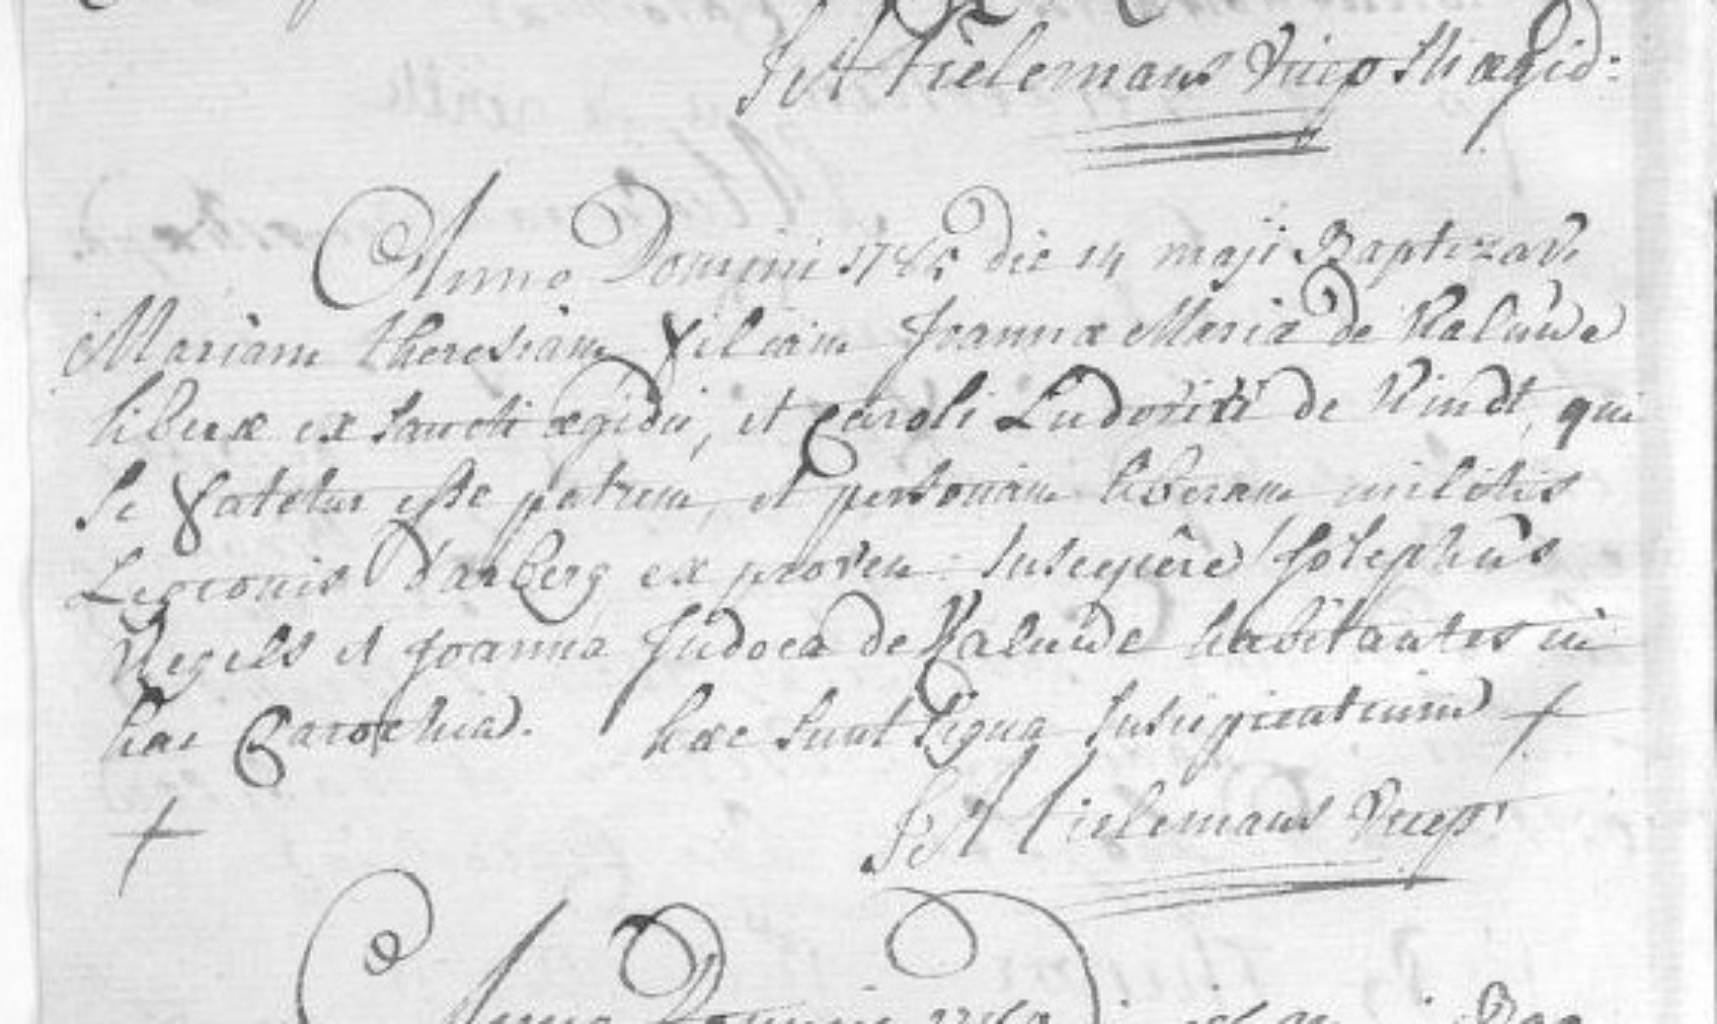 J A Tielemans Vicep St ægid:
Anno Domini die 14 maji Baptizavi
Mariam theresiam filiam Joannæ Maria de
liberæ ex Sancti ægidii, et Caroli Ludovici de Vindt, qui
se fatetur esse patrem, et personam liberam militis
Legionis Darberg ex proven: Suscepêre Josephus
et Joanna Judoca de habitantes in
hac Parochia. hæc sunt signa +
+
J A Tielemans Vicep
Anno Domini